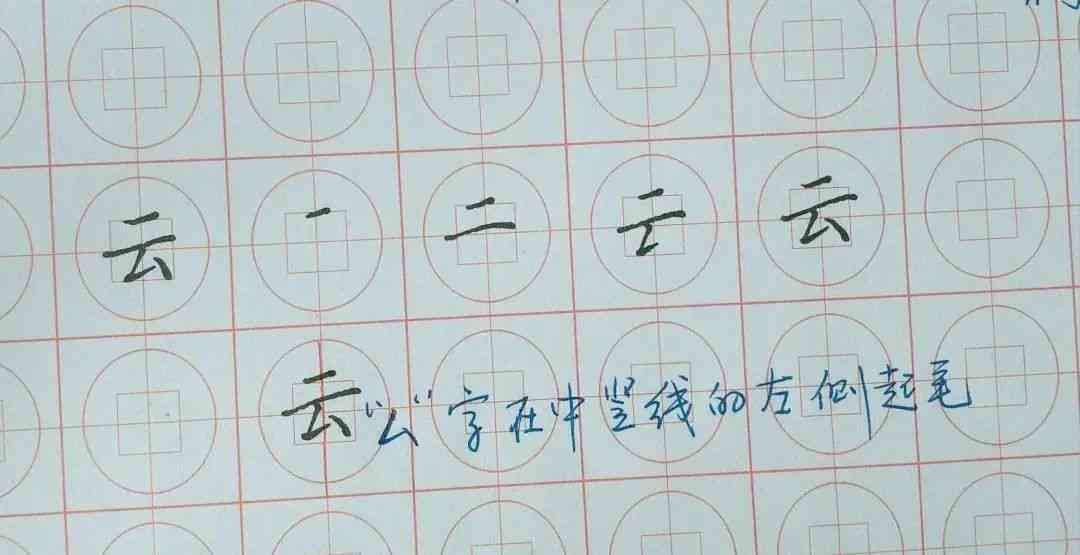 云 一 二 云
云“厶”字在中竖线的左侧起笔